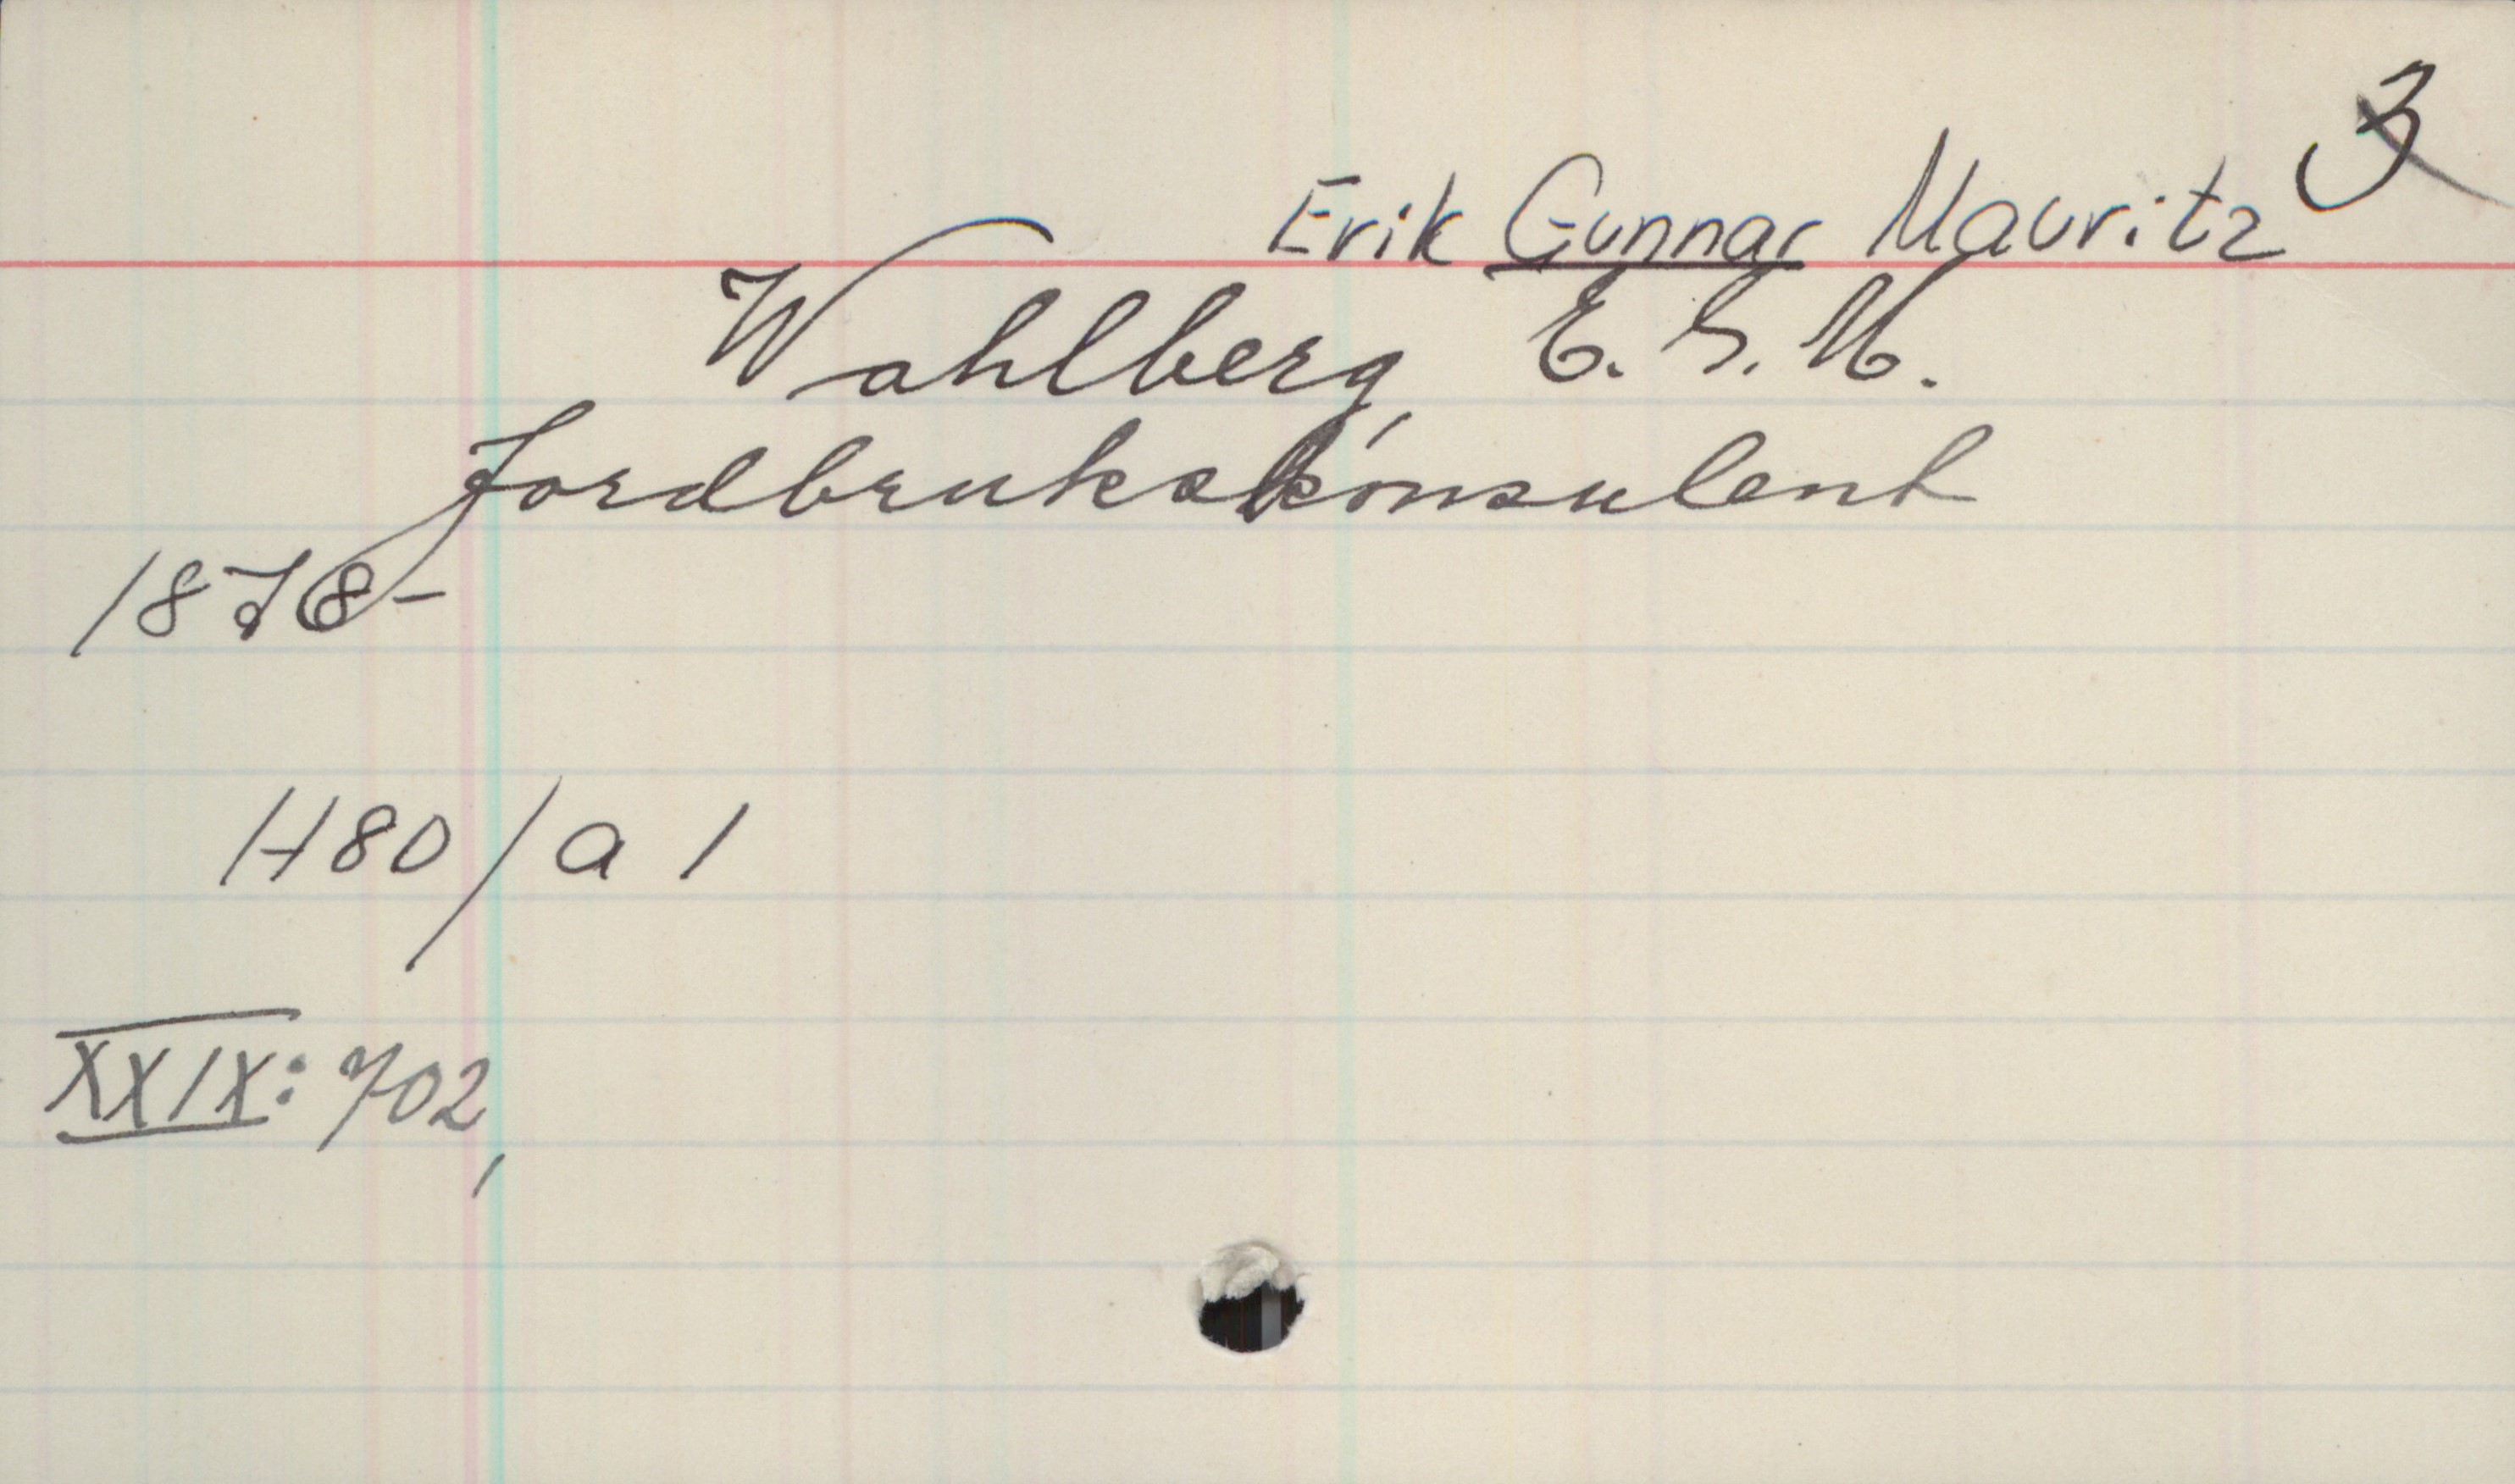 3
Erik Gunnar Mauritz
Wahlberg, E. G. M.
Jordbrukskonsulent
1878-
H80/a 1
XXIX: 702,